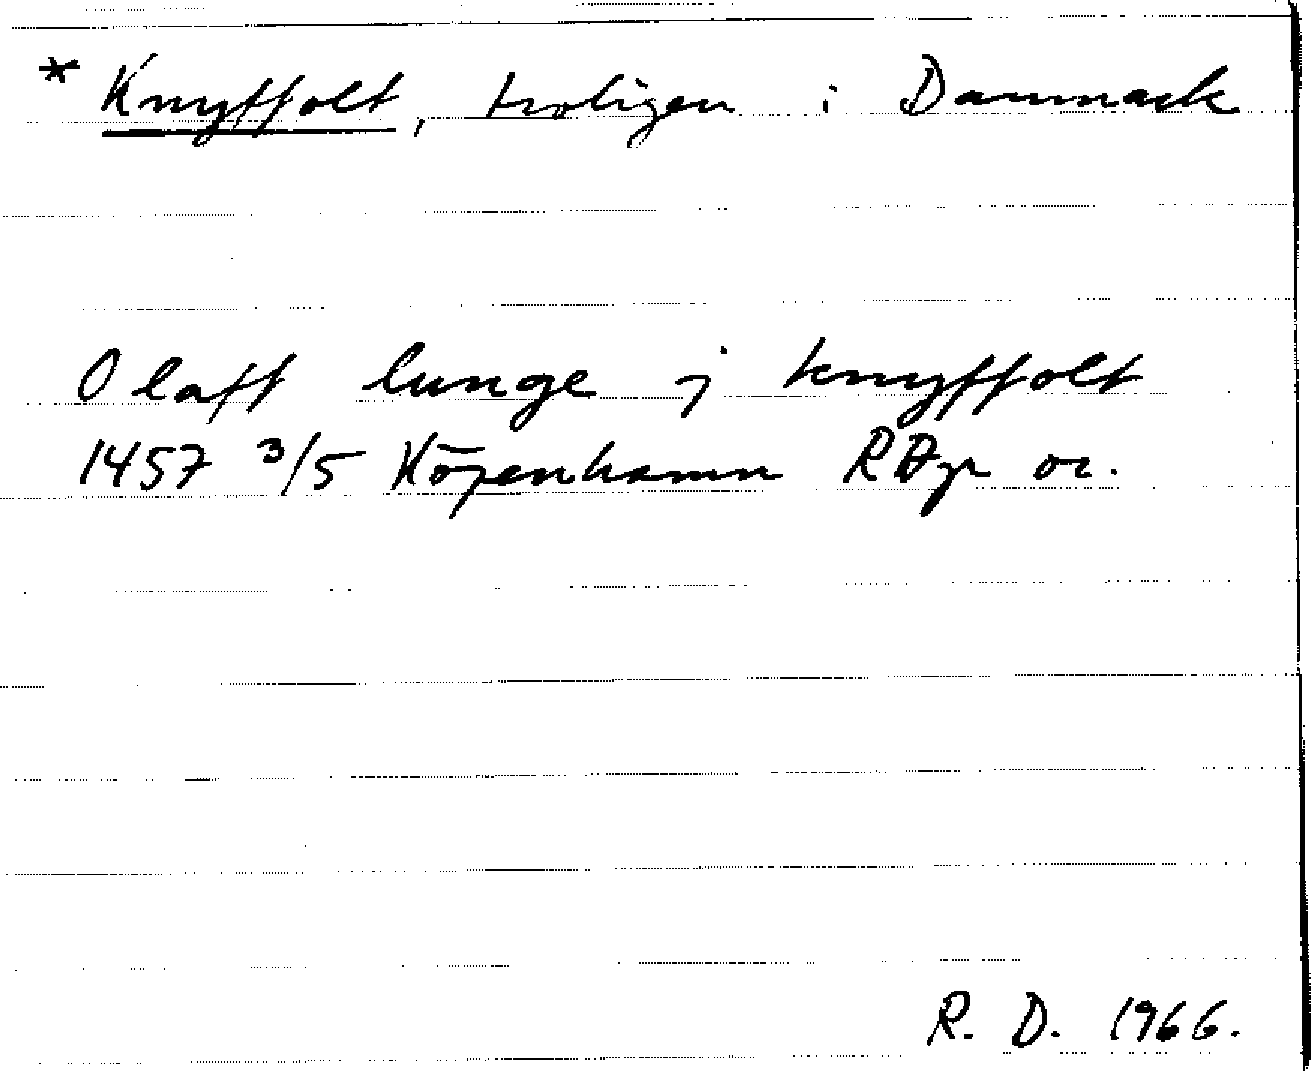 * Knyffholt, troligen i Danmark
Olaff lunge j knyffholt
1457 3/5 Köpenhamn RAp or.
R. D. 1966.